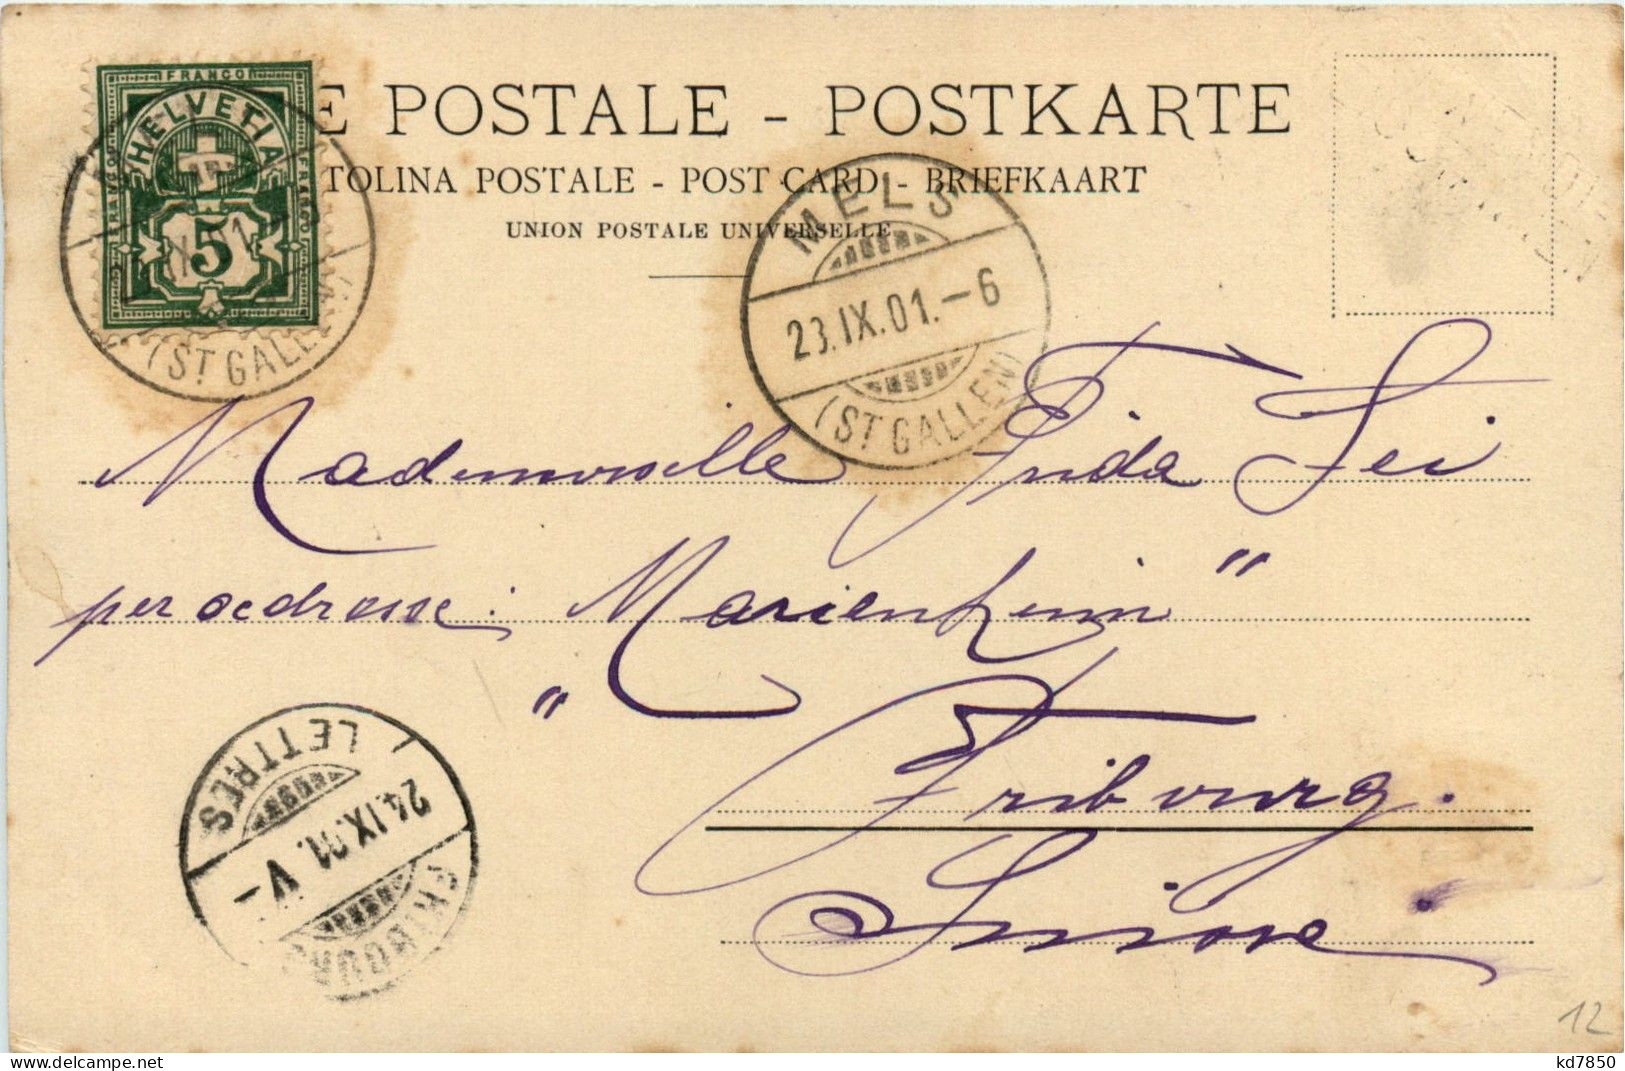 FRANCO
HELVETIA
FRANCO
FRANCO
5
(ST GALLEN)
E POSTALE - POSTKARTE
TOLINA POSTALE - POST CARD - BRIEFKAART
UNION POSTALE UNIVERSELLE
MELS
23.IX.01.-6
(ST GALLEN)
Mademoiselle Frida Fei
per adresse: „Marienheim"
Fribourg.
Suisse
LETTRES
24.IX.01. V-
FRIBOURG
12
kd7850